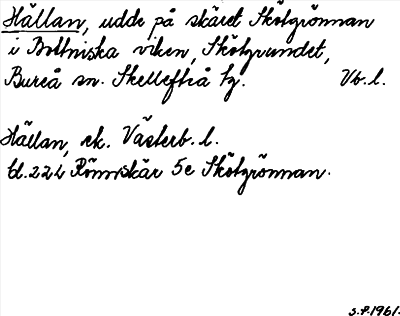 Hällan, udde på skäret Skötgrönnan
i Bottniska viken, Skötgrundet,
Bureå sn. Skellefteå tg. Vb. l.
Hällan, ek. Västerb. l.
bl. 222 Rönnskär 5e Skötgrönnan.
S.P. 1961.